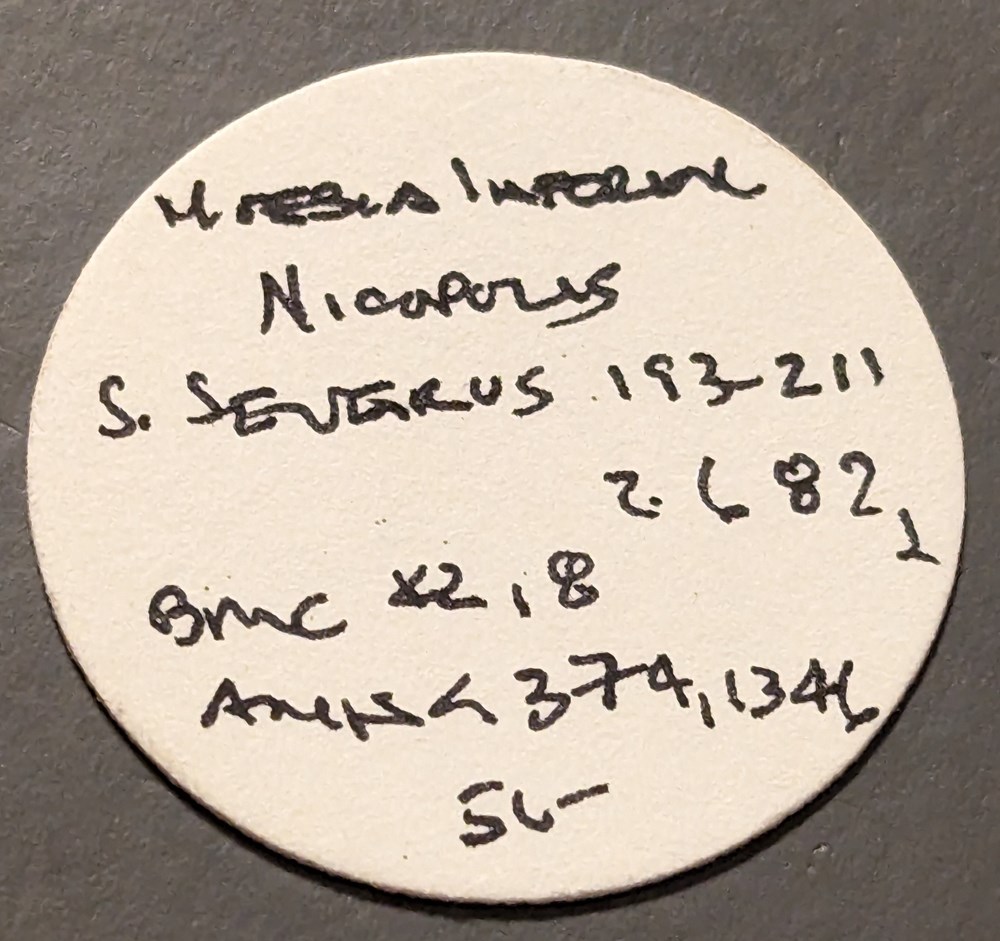 Moesia Inferior
Nicopolis
S. Severus 193-211
2682,
1
BMC 42,8
374,1346